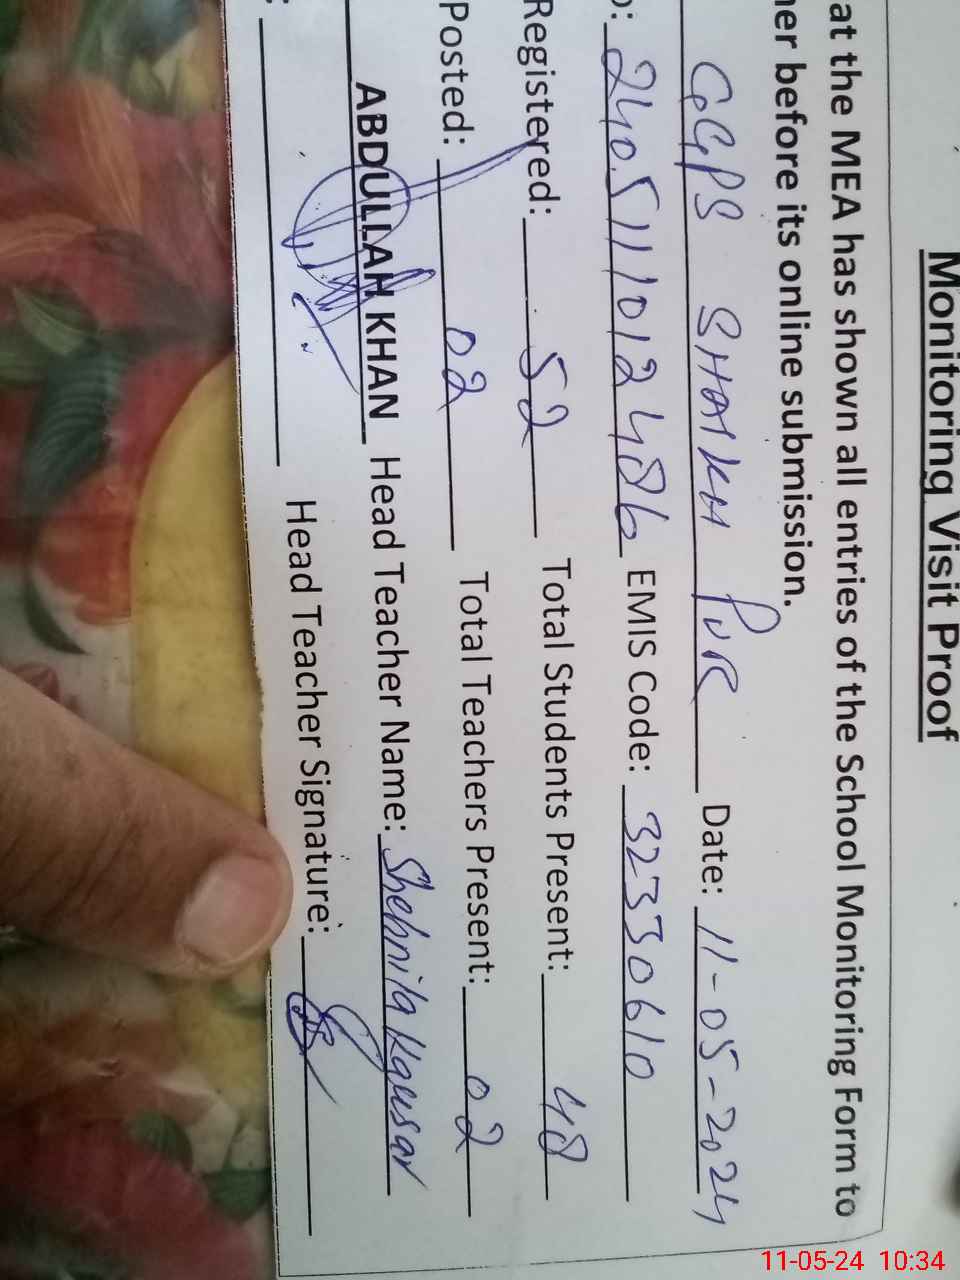 Monitoring Visit Proof
at the MEA has shown all entries of the School Monitoring Form to
her before its online submission.
GGPS SHAIKH PUR Date: 11-05-2024
o: 2405111012486 EMIS Code: 32330610
Registered: 52 Total Students Present: 48
Posted: 02 Total Teachers Present: 02
ABDULLAH KHAN Head Teacher Name: Shehnila Kausar
: Head Teacher Signature:
11-05-24 10:34